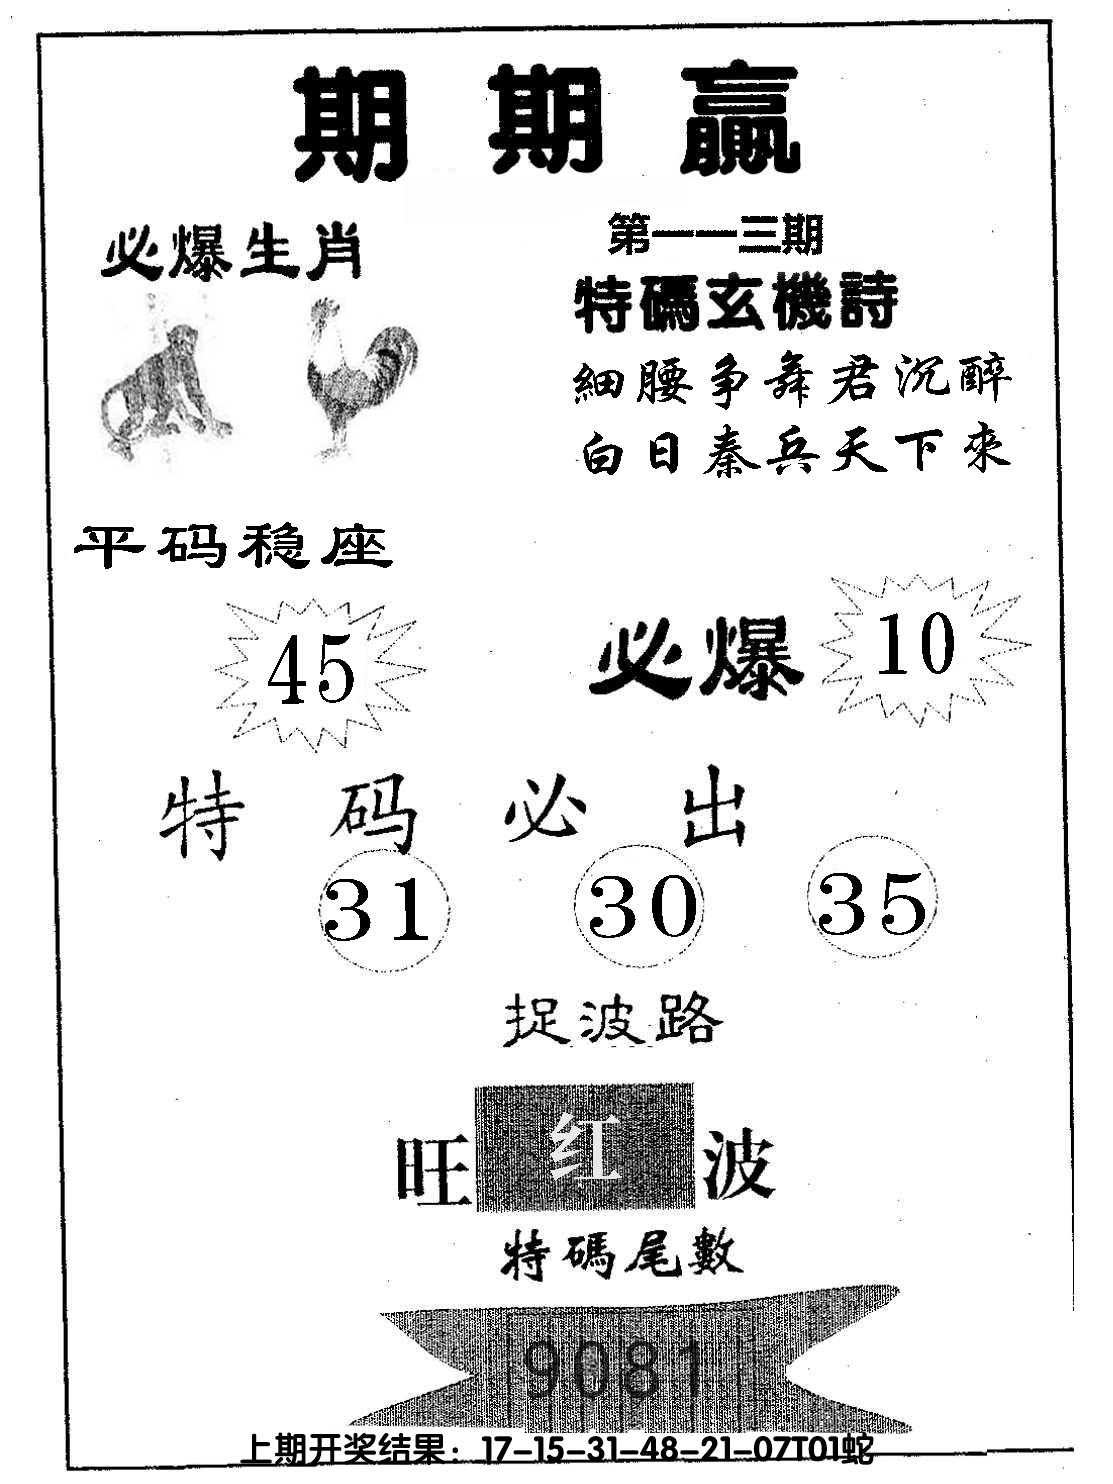 期期赢
必爆生肖
第一一三期
特碼玄機詩
細腰争舞君沉醉
白日秦兵天下來
平码稳座
45
必爆
10
特码必出
31 30 35
捉波路
旺红波
特碼尾數
9081
上期开奖结果：17-15-31-48-21-07T01蛇